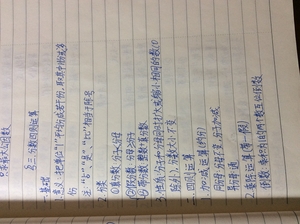 号三分数四则运算
一.基础
1.意义:把单位"1"平均分成若干份,取其中的一份或几份
注:"占""是""比"相当于除号
2.分类
①真分数:分子<分母
②假分数:分子≥分母
③带分数:整数+真分数
3.性质:分子和分母同时扩大或缩小相同的数(0
除外),分数大小不变
二.四则运算
1.加减运算(约分)
同分母:分母不变,分子加减
异分母:通
2.乘除运算(带→假)
倒数:乘积为1的两个数互为倒数